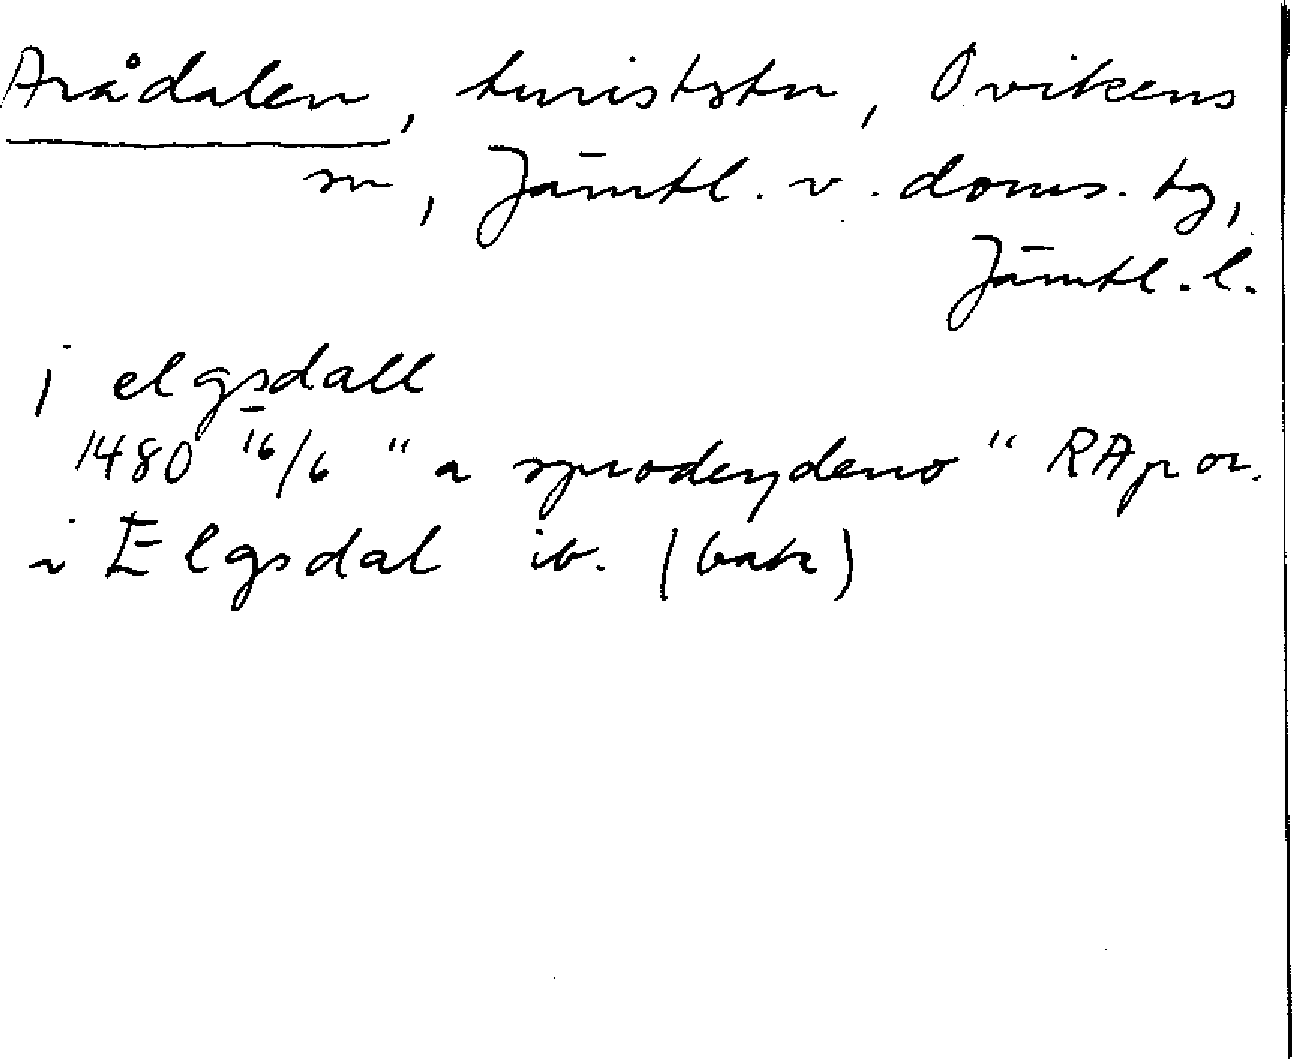 Arådalen, turiststn, Ovikens
sn, Jämtl. v. doms. tg,
Jämtl. l.
i elgsdall
1480 16/6 "a sprodeydeno" RAp or.
i Elgsdal ib. (bak)